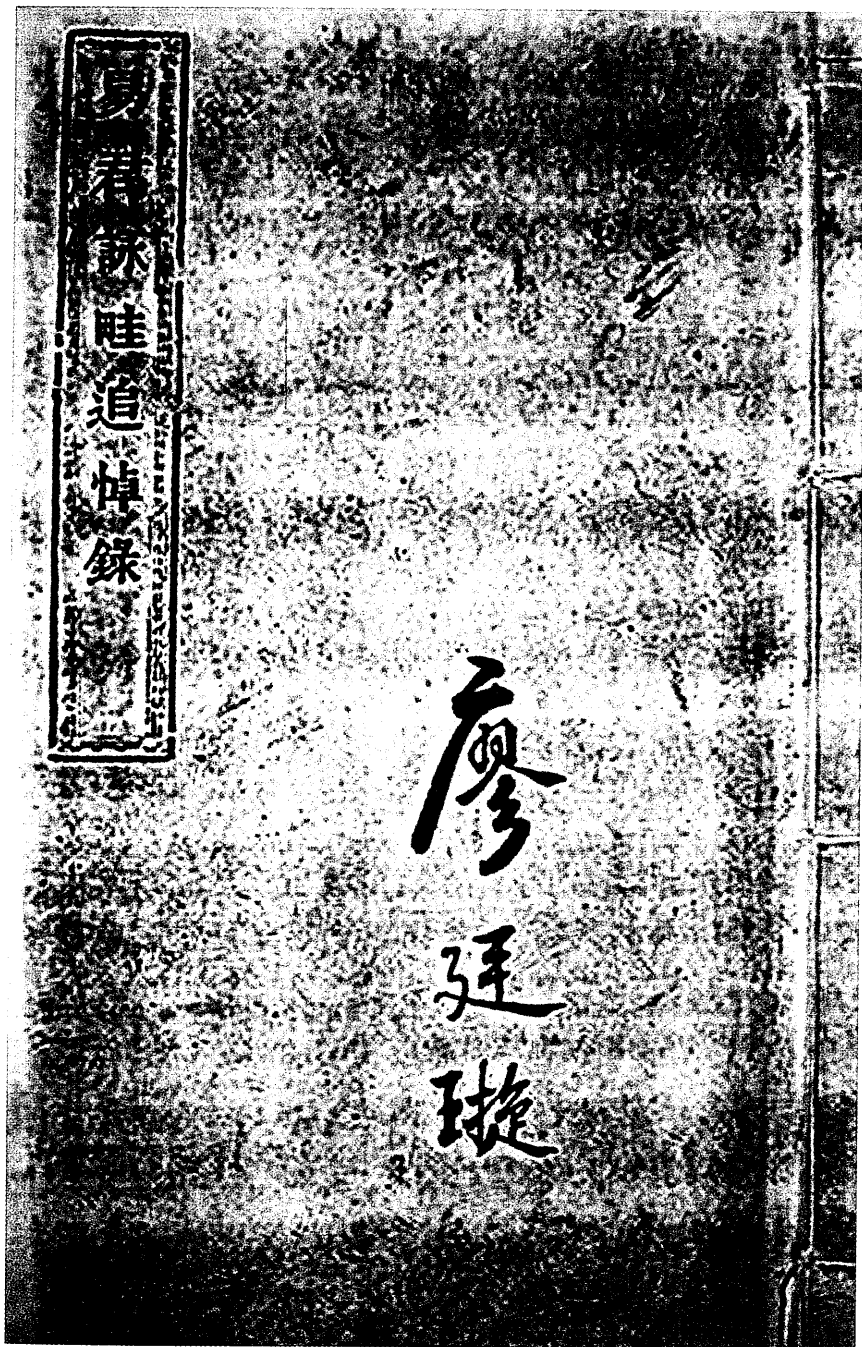 夏君詠畦追悼錄
廖廷璇